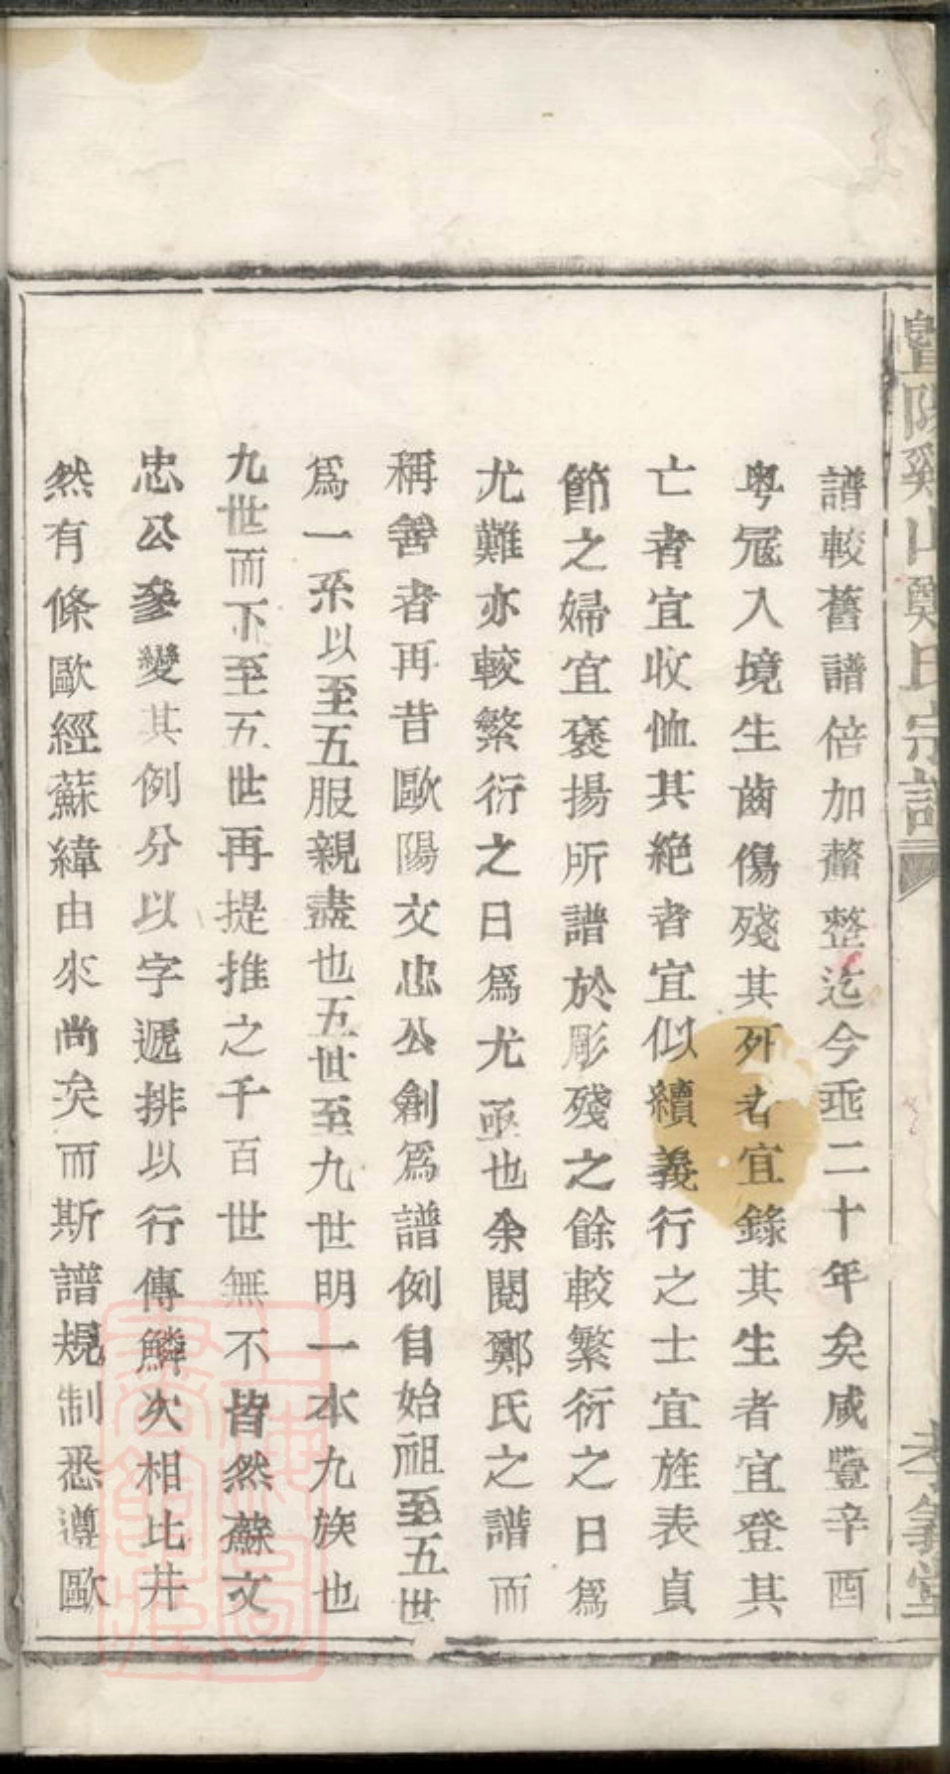 暨陽奚山鄭氏宗譜
孝義堂
譜較舊譜倍加釐整迄今乖二十年矣咸豐辛酉
粤冦入境生齒傷殘其死者宜錄其生者宜登其
亡者宜收恤其絶者宜似續義行之士宜旌表貞
節之婦宜褒揚所譜於彫殘之餘較繁衍之日爲
尤難亦較繁衍之日爲尤亟也余閱鄭氏之譜而
稱善者再昔歐陽文忠公創爲譜例自始祖至五世
爲一系以至五服親盡也五世至九世明一本九族也
九世而下至五世再提推之千百世無不皆然蘇文
忠公參變其例分以字遞排以行傳鱗次相比井
然有條歐經蘇緯由來尚矣而斯譜規制悉遵歐
上海圖書館藏